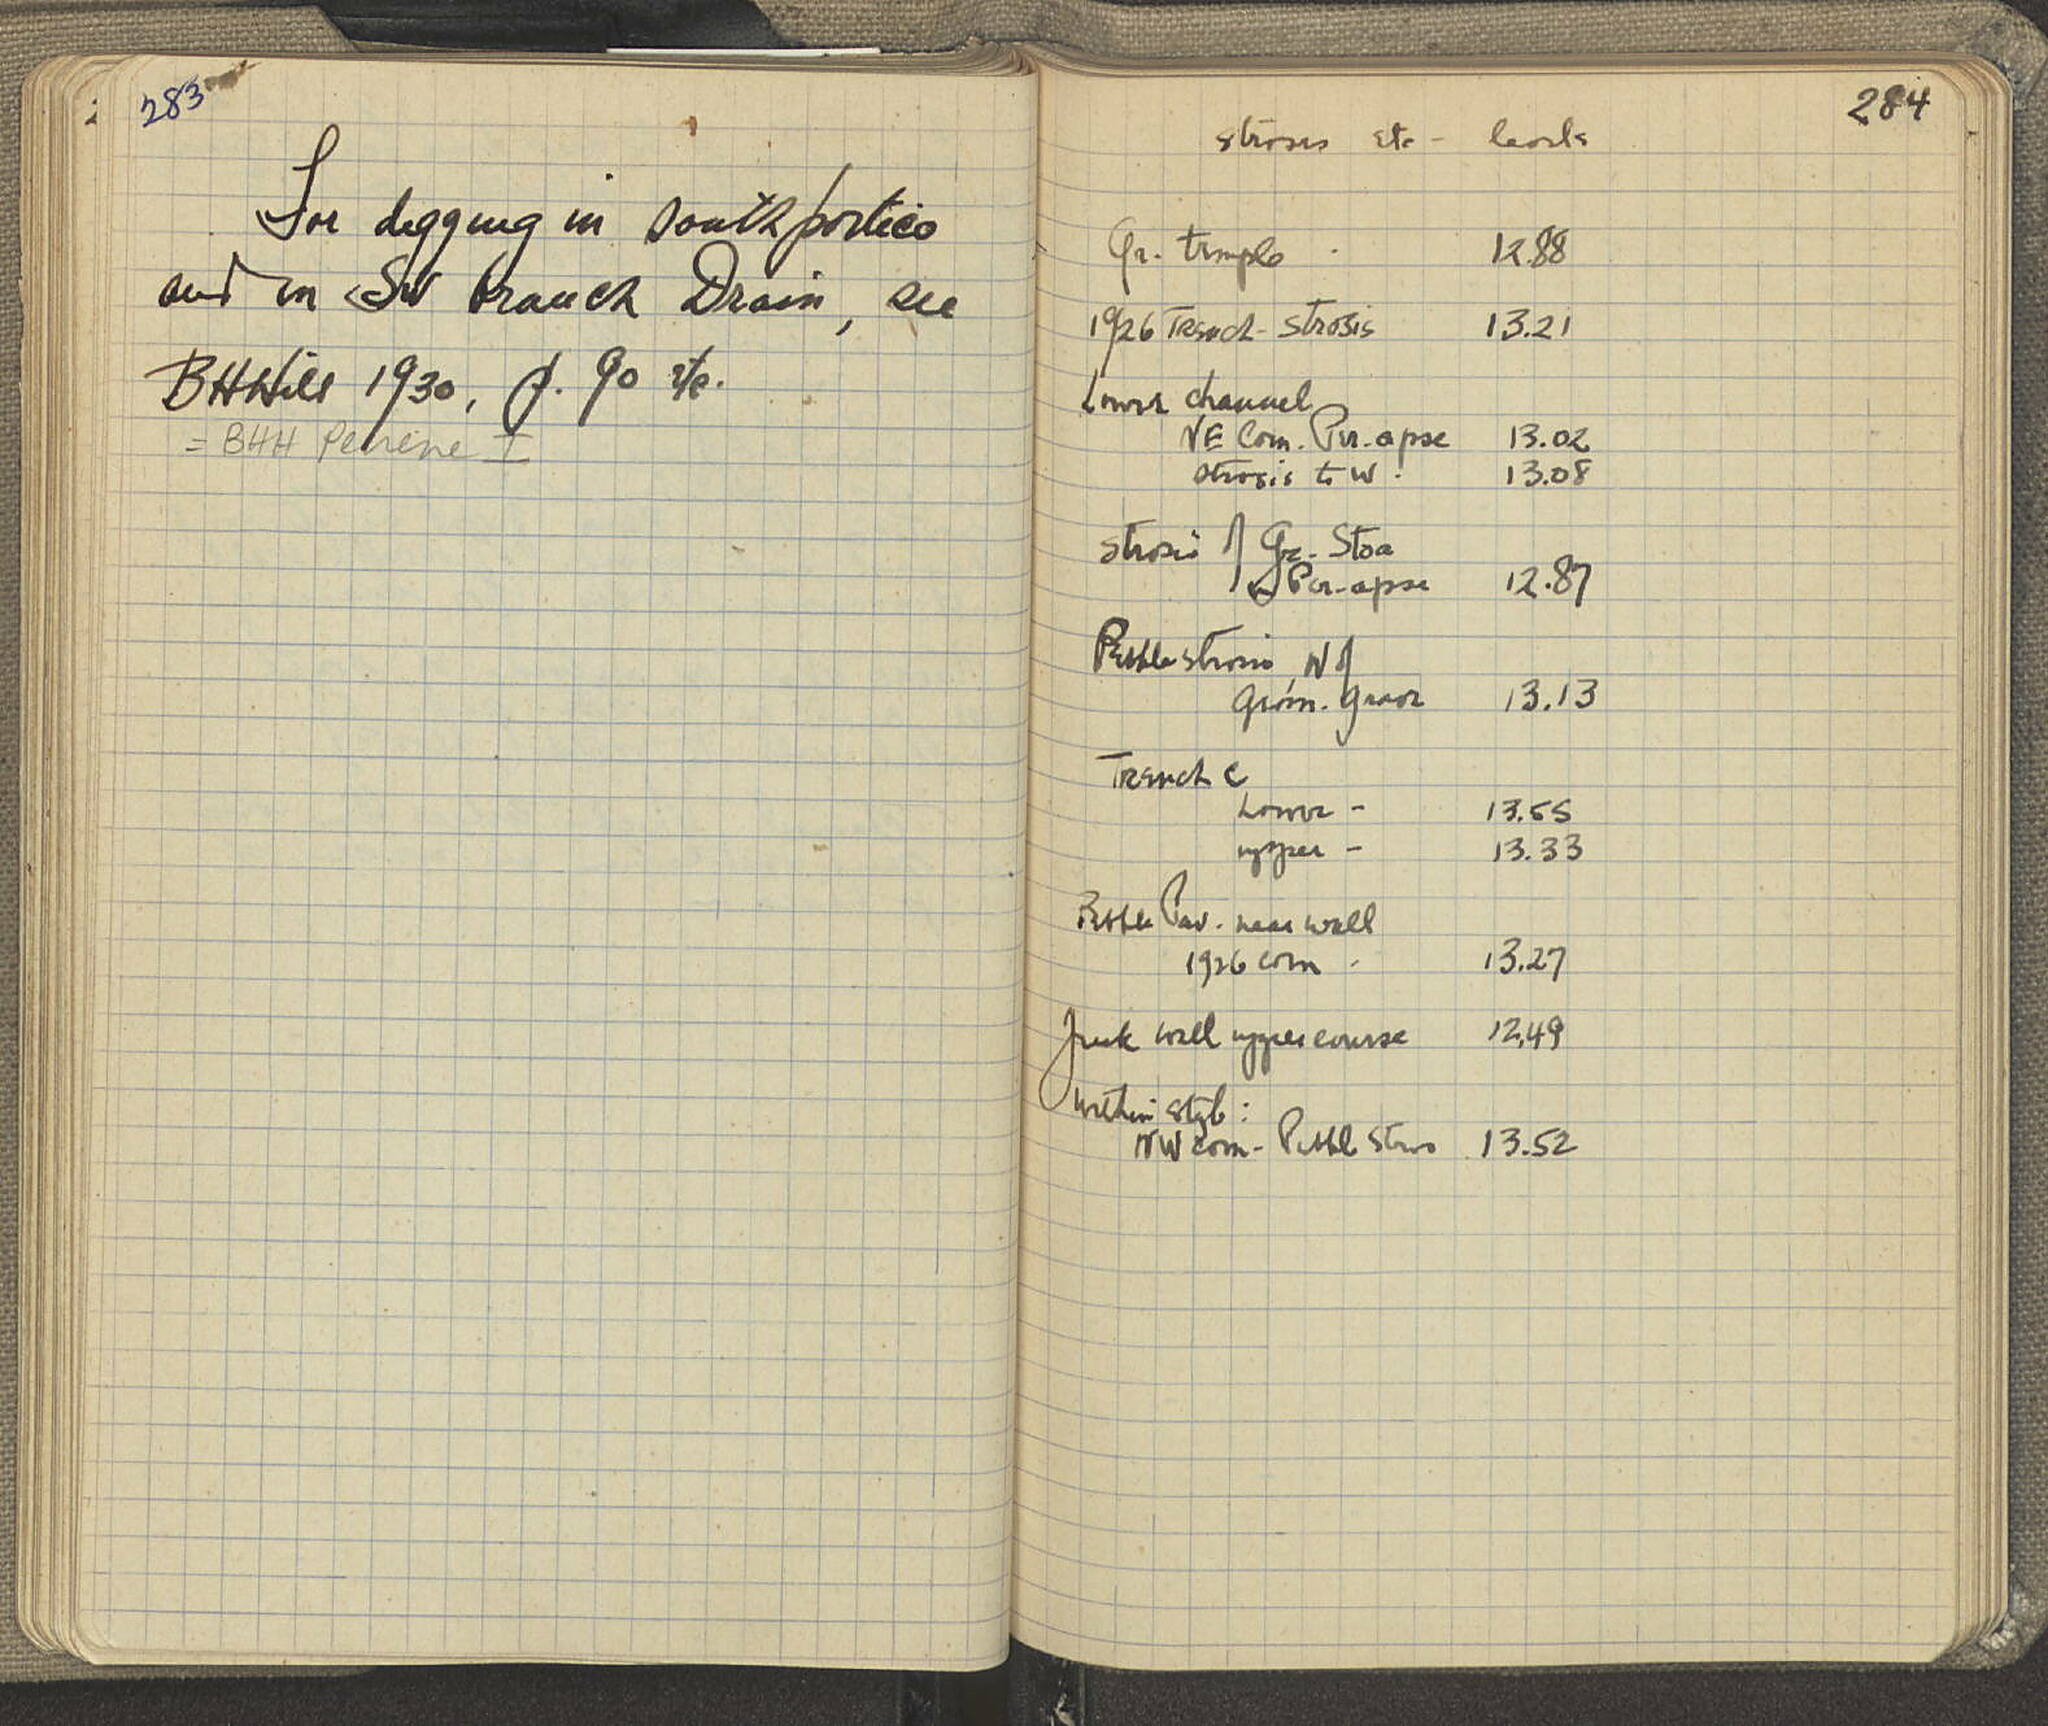 283
For digging in south portico
and in SW branch Drain, see
BHHill 1930, p. 90 etc.
= BHH Peirene I
284
stroses etc - levels
Gr. temple - 12.88
1926 Trench - strosis 13.21
Lower channel
NE Corn. Pir. apse 13.02
strosis to W. 13.08
strosis of Gr. Stoa
Pir-apse 12.87
Pebble strosis, N of
Geom. grave 13.13
Trench C
Lower - 13.55
upper - 13.33
Pebble Pav. near wall
1926 corn - 13.27
Greek wall upper course 12.49
Within styb:
NW corn - Pebble stros 13.52